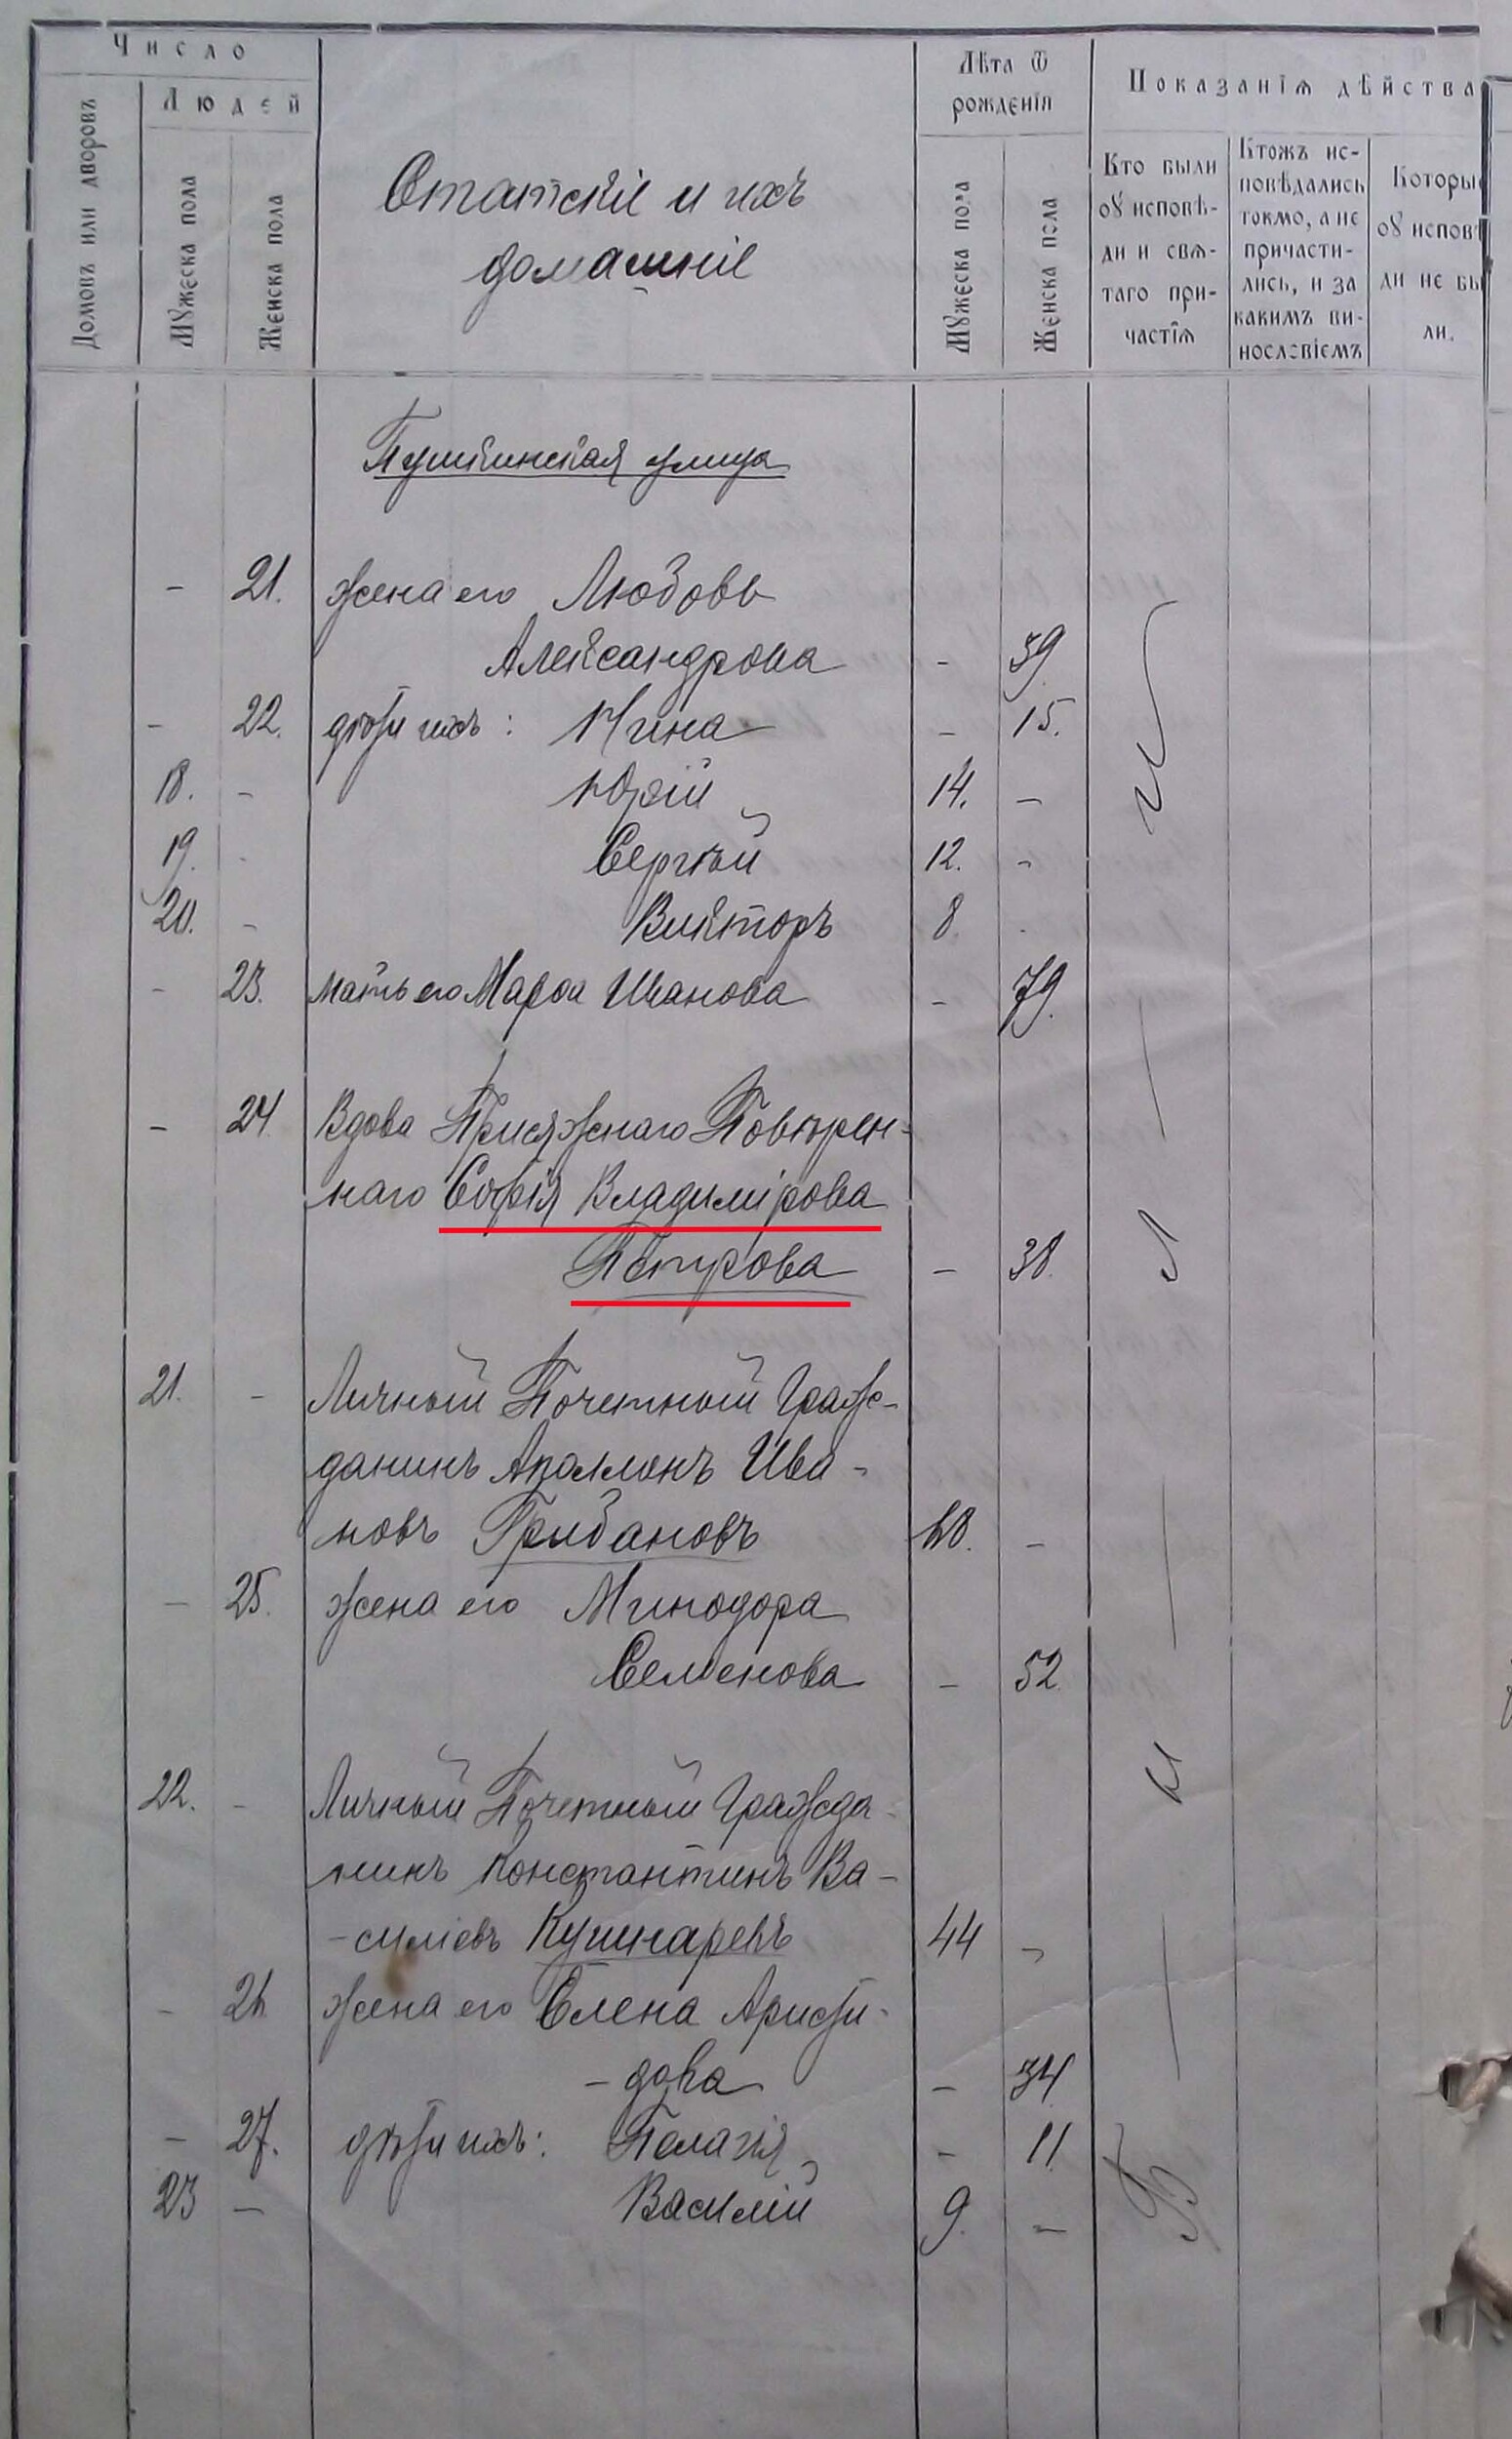 Число
Людей
Домовъ или дворовъ
Мꙋжеска пола
Женска пола
Статскіе и ихъ
домашніе
Лѣта ѿ
рожденїѧ
Мꙋжеска пола
Женска пола
Показанїѧ дѣйства
Кто были
оу исповѣ-
ди и свѧ-
таго при-
частїѧ
Ктожъ ис-
повѣдались
токмо, а не
причасти-
лись, и за
какимъ ви-
нословїемъ
Которы
оу исповѣ
ди не бы
ли.
Пушкинская улица
- 21. жена его Любовь
Александрова - 39.
- 22. дѣти ихъ: Нина - 15.
18. - Юрій 14. -
19. - Сергѣй 12. -
20. - Викторъ 8. -
- 23. мать его Марѳа Иванова - 79.
- 24 Вдова Присяжнаго Повѣрен-
наго Софія Владимірова
Петрова - 38.
21. - Личный Почетный Граж-
данинъ Аполлонъ Ива-
новъ Грибановъ 60. -
- 25. жена его Минодора
Семенова - 52.
22. - Личный Почетный Гражда-
нинъ Константинъ Ва-
-силіевъ Кушнаревъ 44 -
- 26 жена его Елена Аристи-
-дова - 34
- 27. дѣти ихъ: Пелагія - 11
23 - Василій 9. -